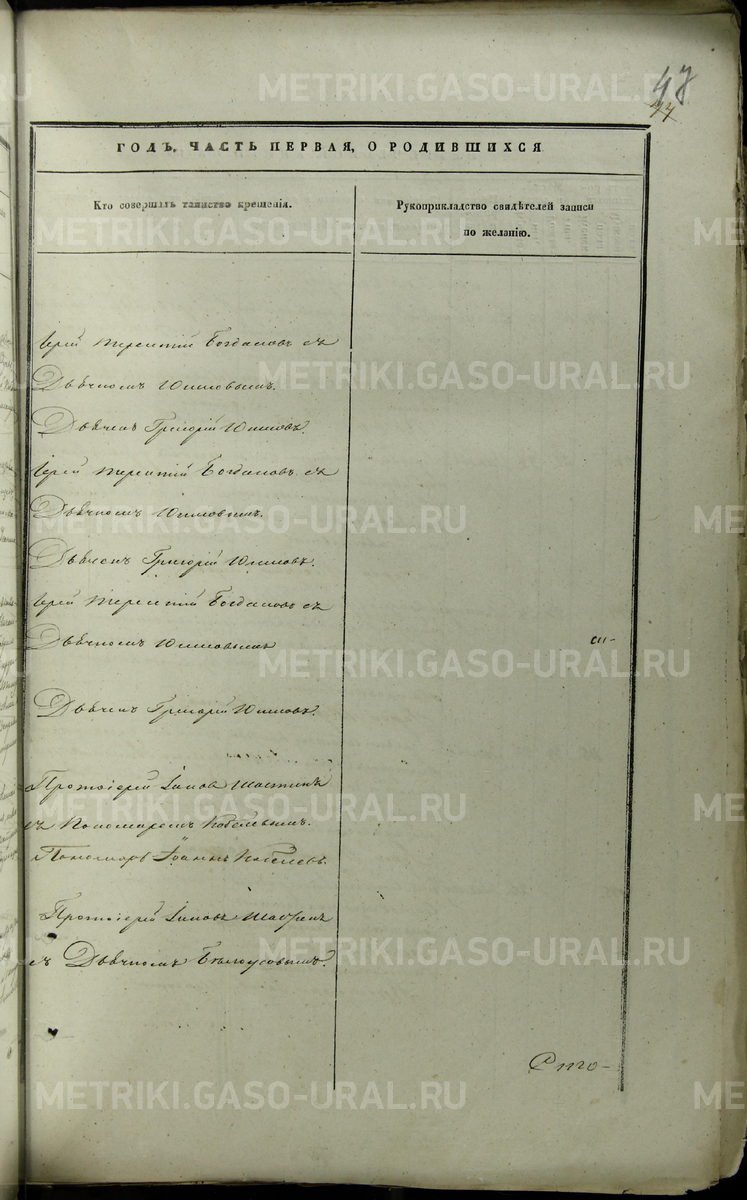 47
44
ГОДЪ, ЧАСТЬ ПЕРВАЯ, О РОДИВШИХСЯ
Кто совершалъ таинство крещенія.
Рукоприкладство свидѣтелей записи
по желанію.
Іерей Терентій Богдановъ съ
Дьячкомъ Юшковымъ.
Дьячекъ Григорій Юшковъ.
Іерей Терентій Богдановъ съ
Дьячкомъ Юшковымъ.
Дьячекъ Григорій Юшковъ.
Іерей Терентій Богдановъ съ
Дьячкомъ Юшковымъ
Дьячекъ Григорій Юшковъ.
Протоіерей Іаковъ
съ Пономаремъ
Пономарь Іоаннъ
Протоіерей Іаковъ
съ Дьячкомъ Бѣлоусовымъ.
METRIKI.GASO-URAL.RU